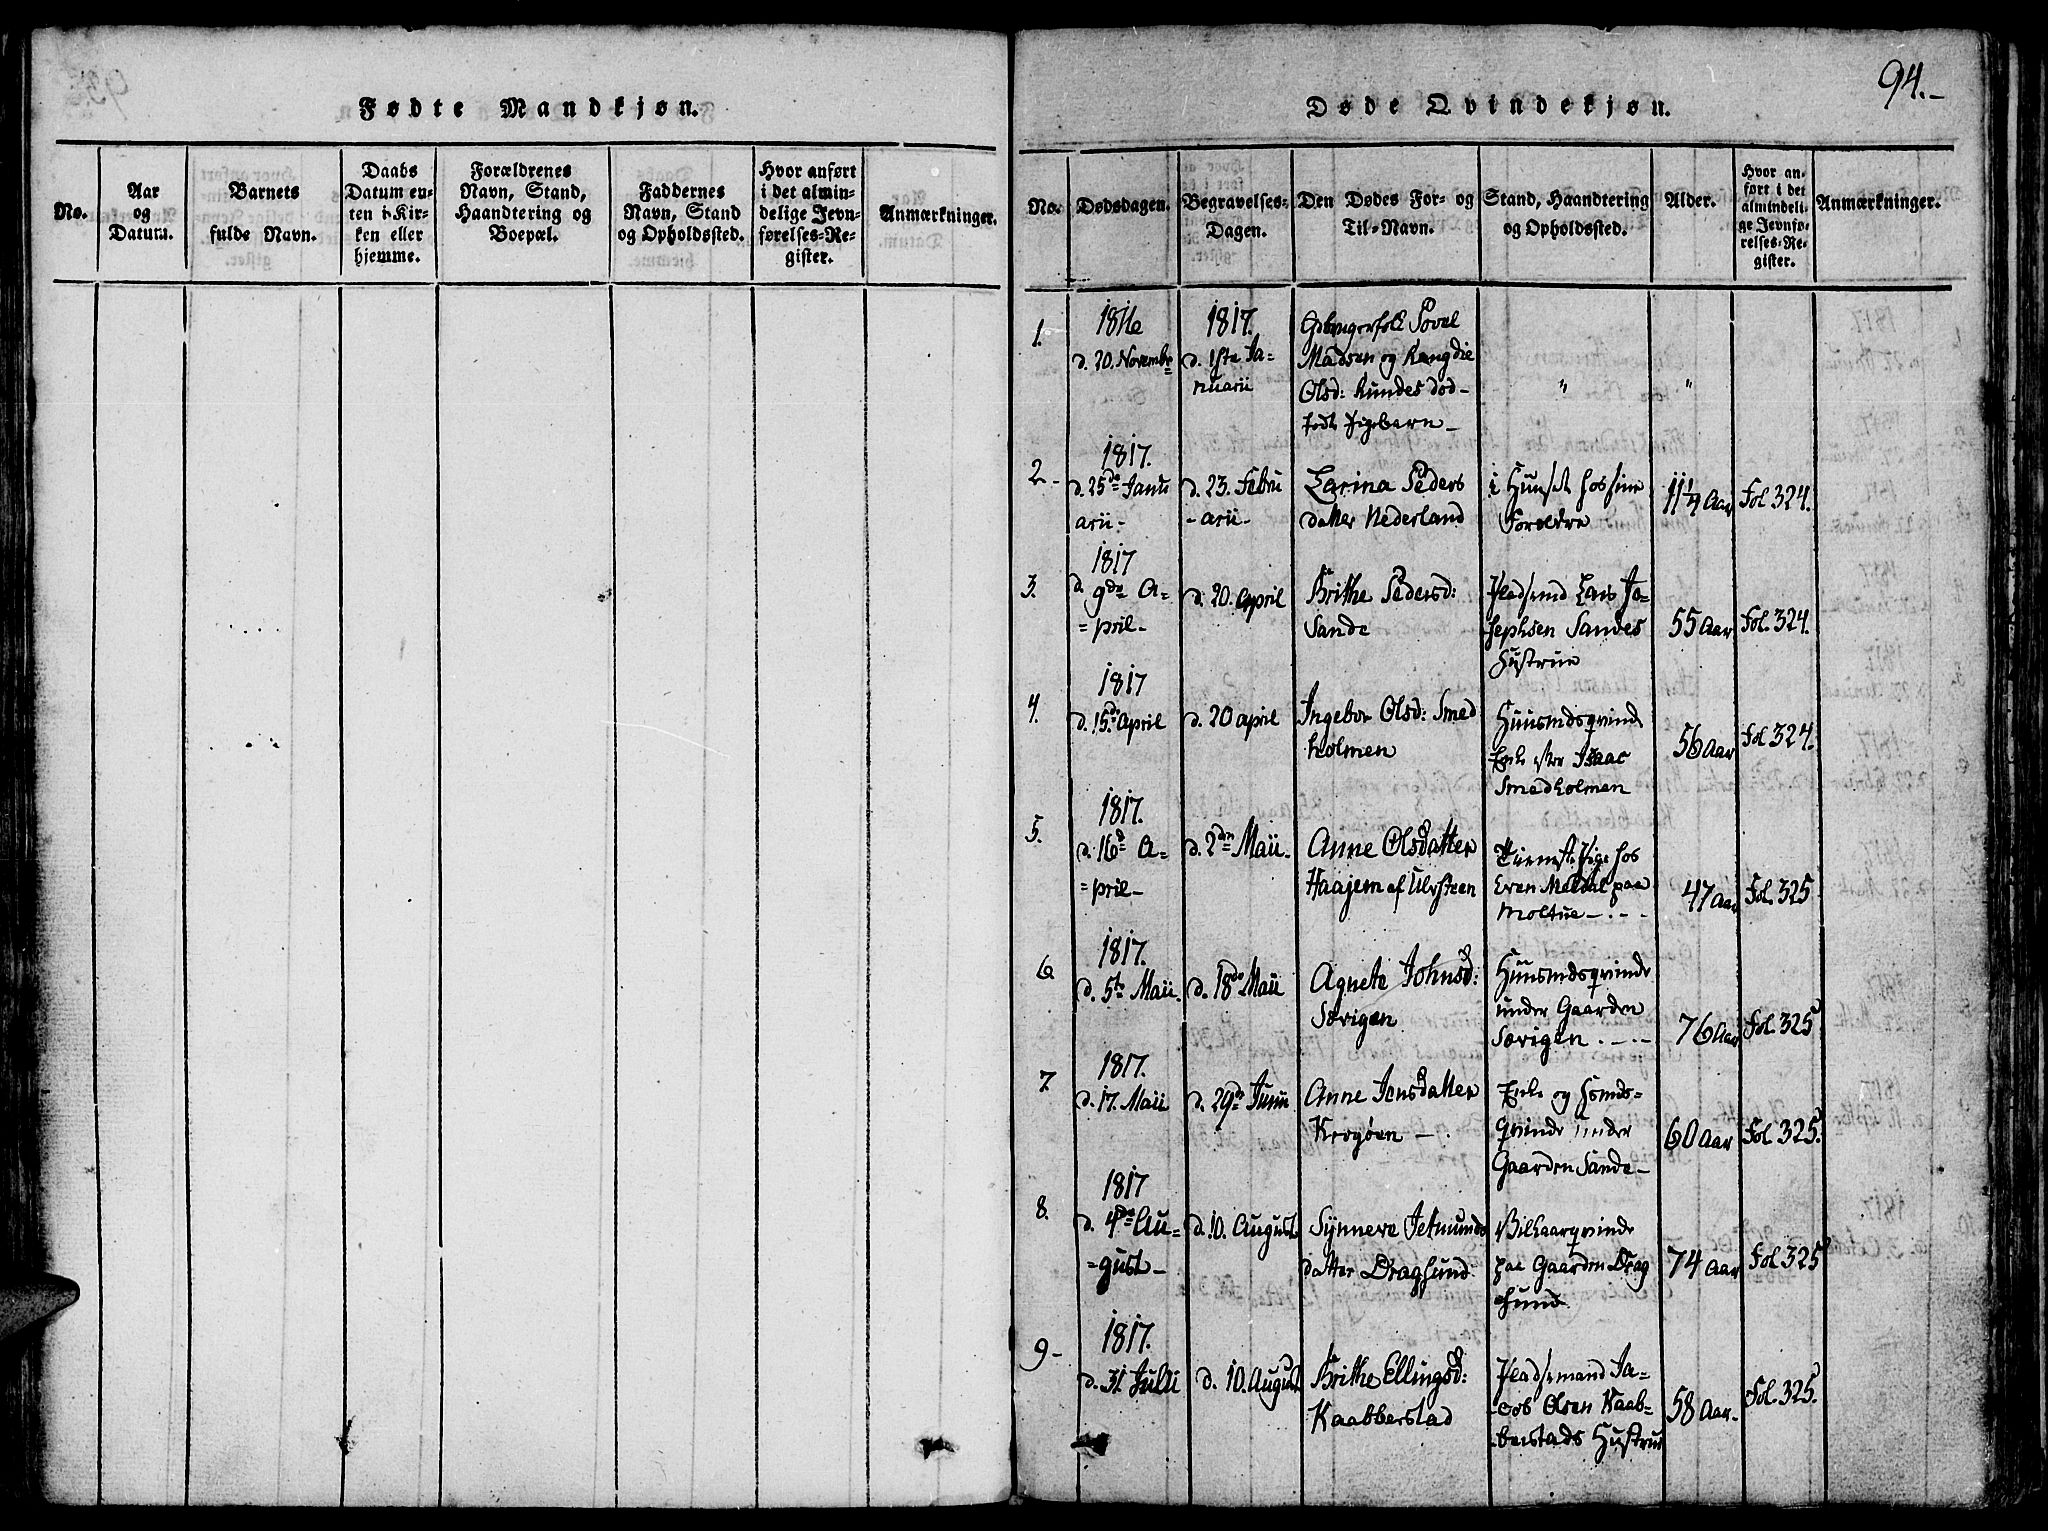 Fødte Mandkjøn.
No.
Aar
og
Datum.
Barnets
fulde Navn.
Daabs
Datum en-
ten i Kir-
ken eller
hjemme.
Forældrenes
Navn, Stand,
Haandtering og
Boepæl.
Faddernes
Navn, Stand
og Opholdssted.
Hvor anført
i det almin-
delige Jevn-
førelses-Re-
gister.
Anmærkninger.
94.-
Døde Qvindekjøn.
No.
Dødsdagen.
Begravelses-
Dagen.
Den Dødes For- og
Til-Navn.
Stand, Haandtering
og Opholdssted.
Alder.
Hvor an-
ført i det
almindeli-
ge Jevnfø-
relses-Re-
gister.
Anmærkninger.
1.
1816
d. 20. Novembr
1817.
d. 1ste Ja-
nuarii
Povel
Madsen og
Olsd: Rundes død-
født Pigebarn -
"
"
2 -
1817.
d. 25de Janu
arii -
d. 23. Febru
- arii -
Larina Peders
datter Nederland
i Huuset hos sine
Forældre
11 1/4 Aar
Fol 324.
3.
1817
d. 9de A-
= pril -
d. 20. april
Brithe Pedersd:
Sande
Pladsmd Lars Jo-
sephsen Sandes
Hustrue
55 Aar
Fol. 324.
4.
1817
d. 15de April
d. 20 april
Ingebor Olsd: Smed
holmen
Huusmdsqvinde
Enke efter Isaac
Smedholmen
56 Aar
Fol 324.
5.
1817.
d. 16de A-
= pril -
d. 2den Maii -
Anne Olsdatter
Haajem af Ulvsteen
Tienestepige hos
Even Meldal paa
Moltue - . - -
47 Aar
Fol. 325
6
1817.
d. 5te Maii.
d. 18de Maii
Agnete Johnsd:
Sørvigen
Huusmdsqvinde
under Gaarden
Sørvigen . - . -
76 Aar
Fol. 325
7.
1817.
d. 17. Maii
d. 29de Junii
Anne Jensdatter
Krogøen - .
Enke og Hsmds-
qvinde under
Gaarden Sande -
60 Aar
Fol. 325.
8.
1817
d. 4de Au-
= gust -
d. 10. August
Synneve Jetmunds
datter Dragsund
Vilkaarqvinde
paa Gaarden Drag
sund
74 Aar
Fol. 325
9 -
1817.
d. 31 Julii
d. 10. August
Brithe Ellingsd:
Kaabberstad
Pladsemand Ja-
cob Olsen Kaab-
berstads Hustrue
58 Aar -
Fol. 325.